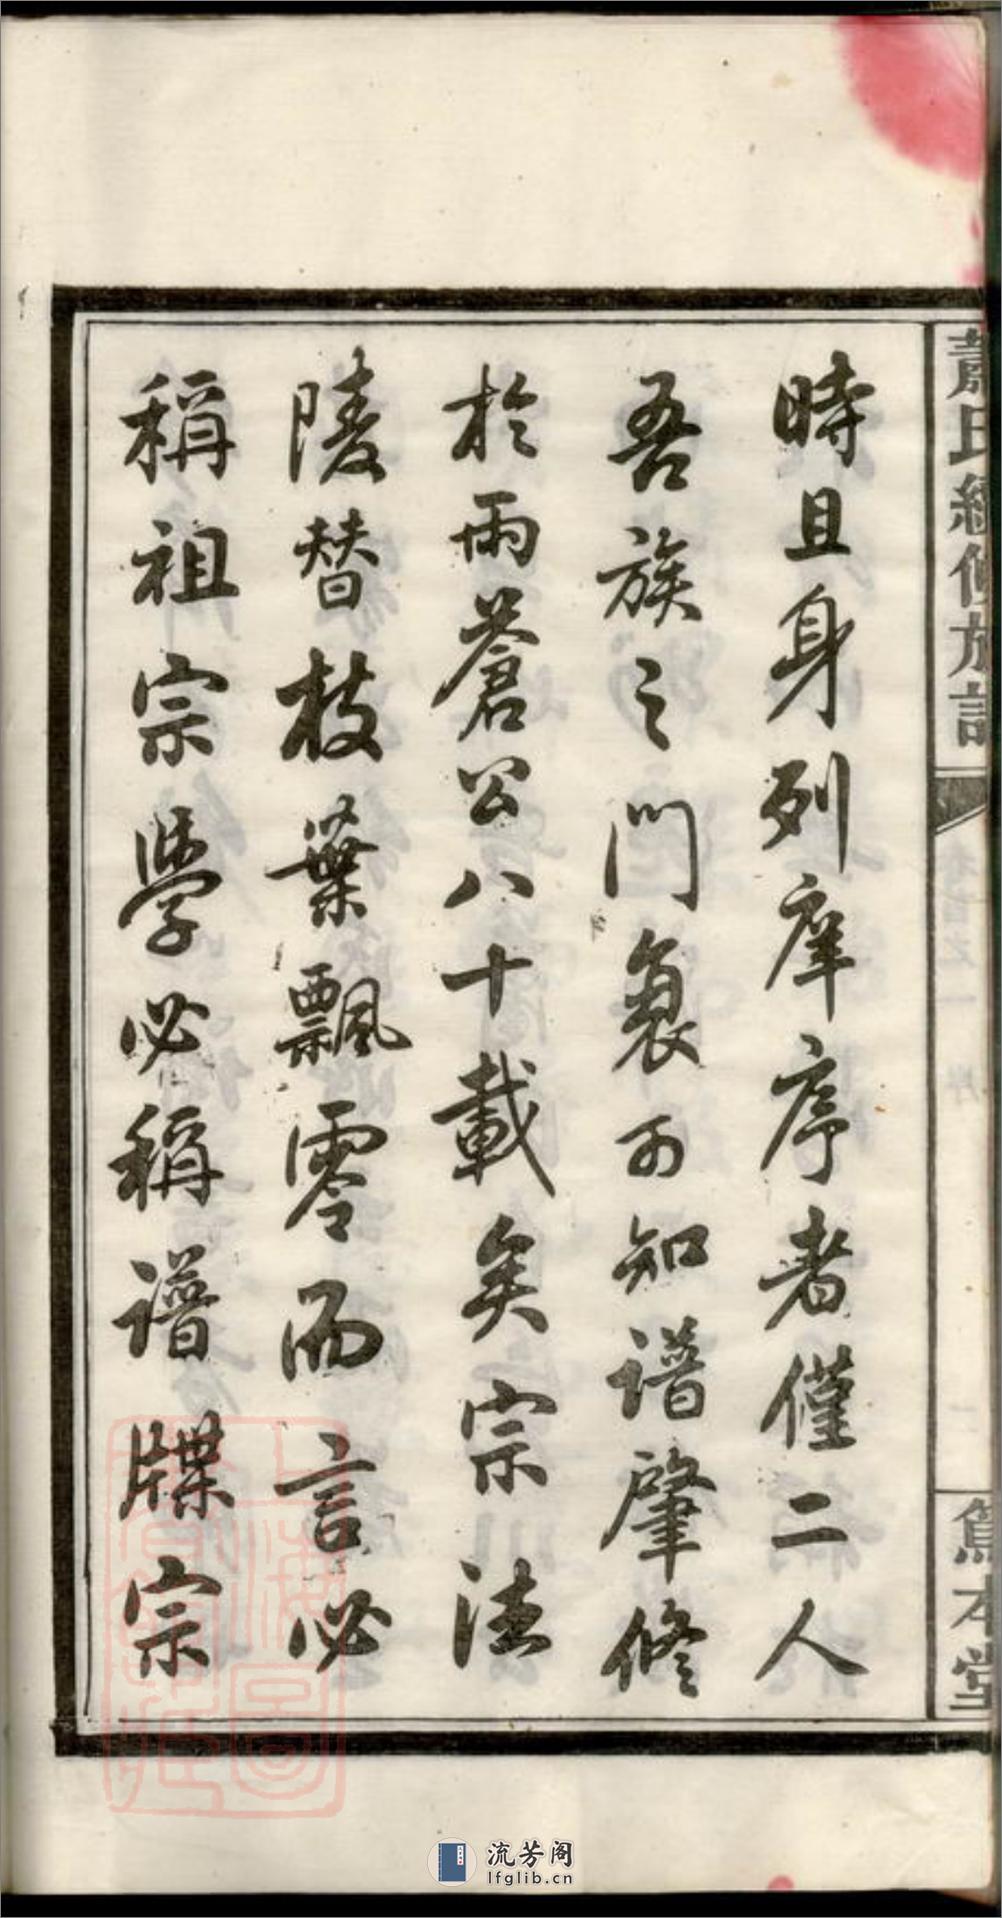 時且身列庠序者僅二人
吾族之門衰可知譜肇修
於雨蒼公八十載矣宗法
陵替枝葉飄零而言必
稱祖宗學必稱譜牒宗
蕭氏續修族譜
卷首之一 序
二
篤本堂
流芳阁
lfglib.cn